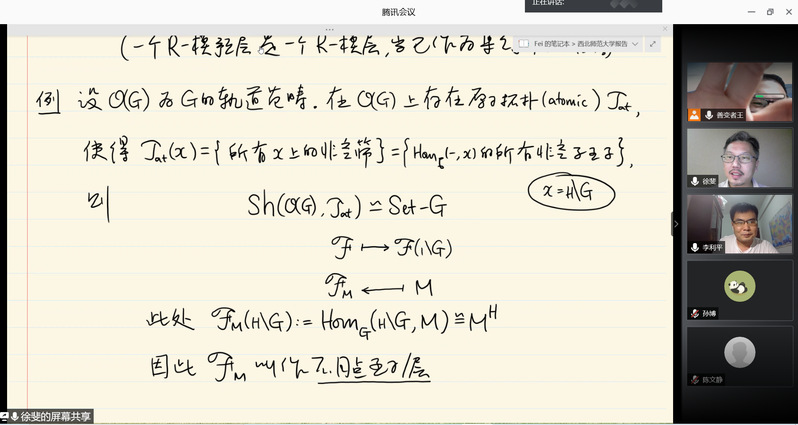 腾讯会议
正在讲话:
Fei 的笔记本 > 西北师范大学报告
(一个R-模预层是一个R-模层,当它作为集
例 设 O(G) 为 G 的轨道范畴. 在 O(G) 上存在原子拓扑(atomic) J_at,
使得 J_at(x) = {所有 x 上的非空筛} = {Hom_G(-,x) 的所有非空子函子},
x = H\G
则 Sh(O(G), J_at) ≃ Set-G
F ⟼ F(1\G)
F_M ⟻ M
此处 F_M(H\G) := Hom_G(H\G, M) ≅ M^H
因此 F_M 叫作不动点函子/层
善变者王
徐斐
李利平
孙博
陈文静
徐斐的屏幕共享